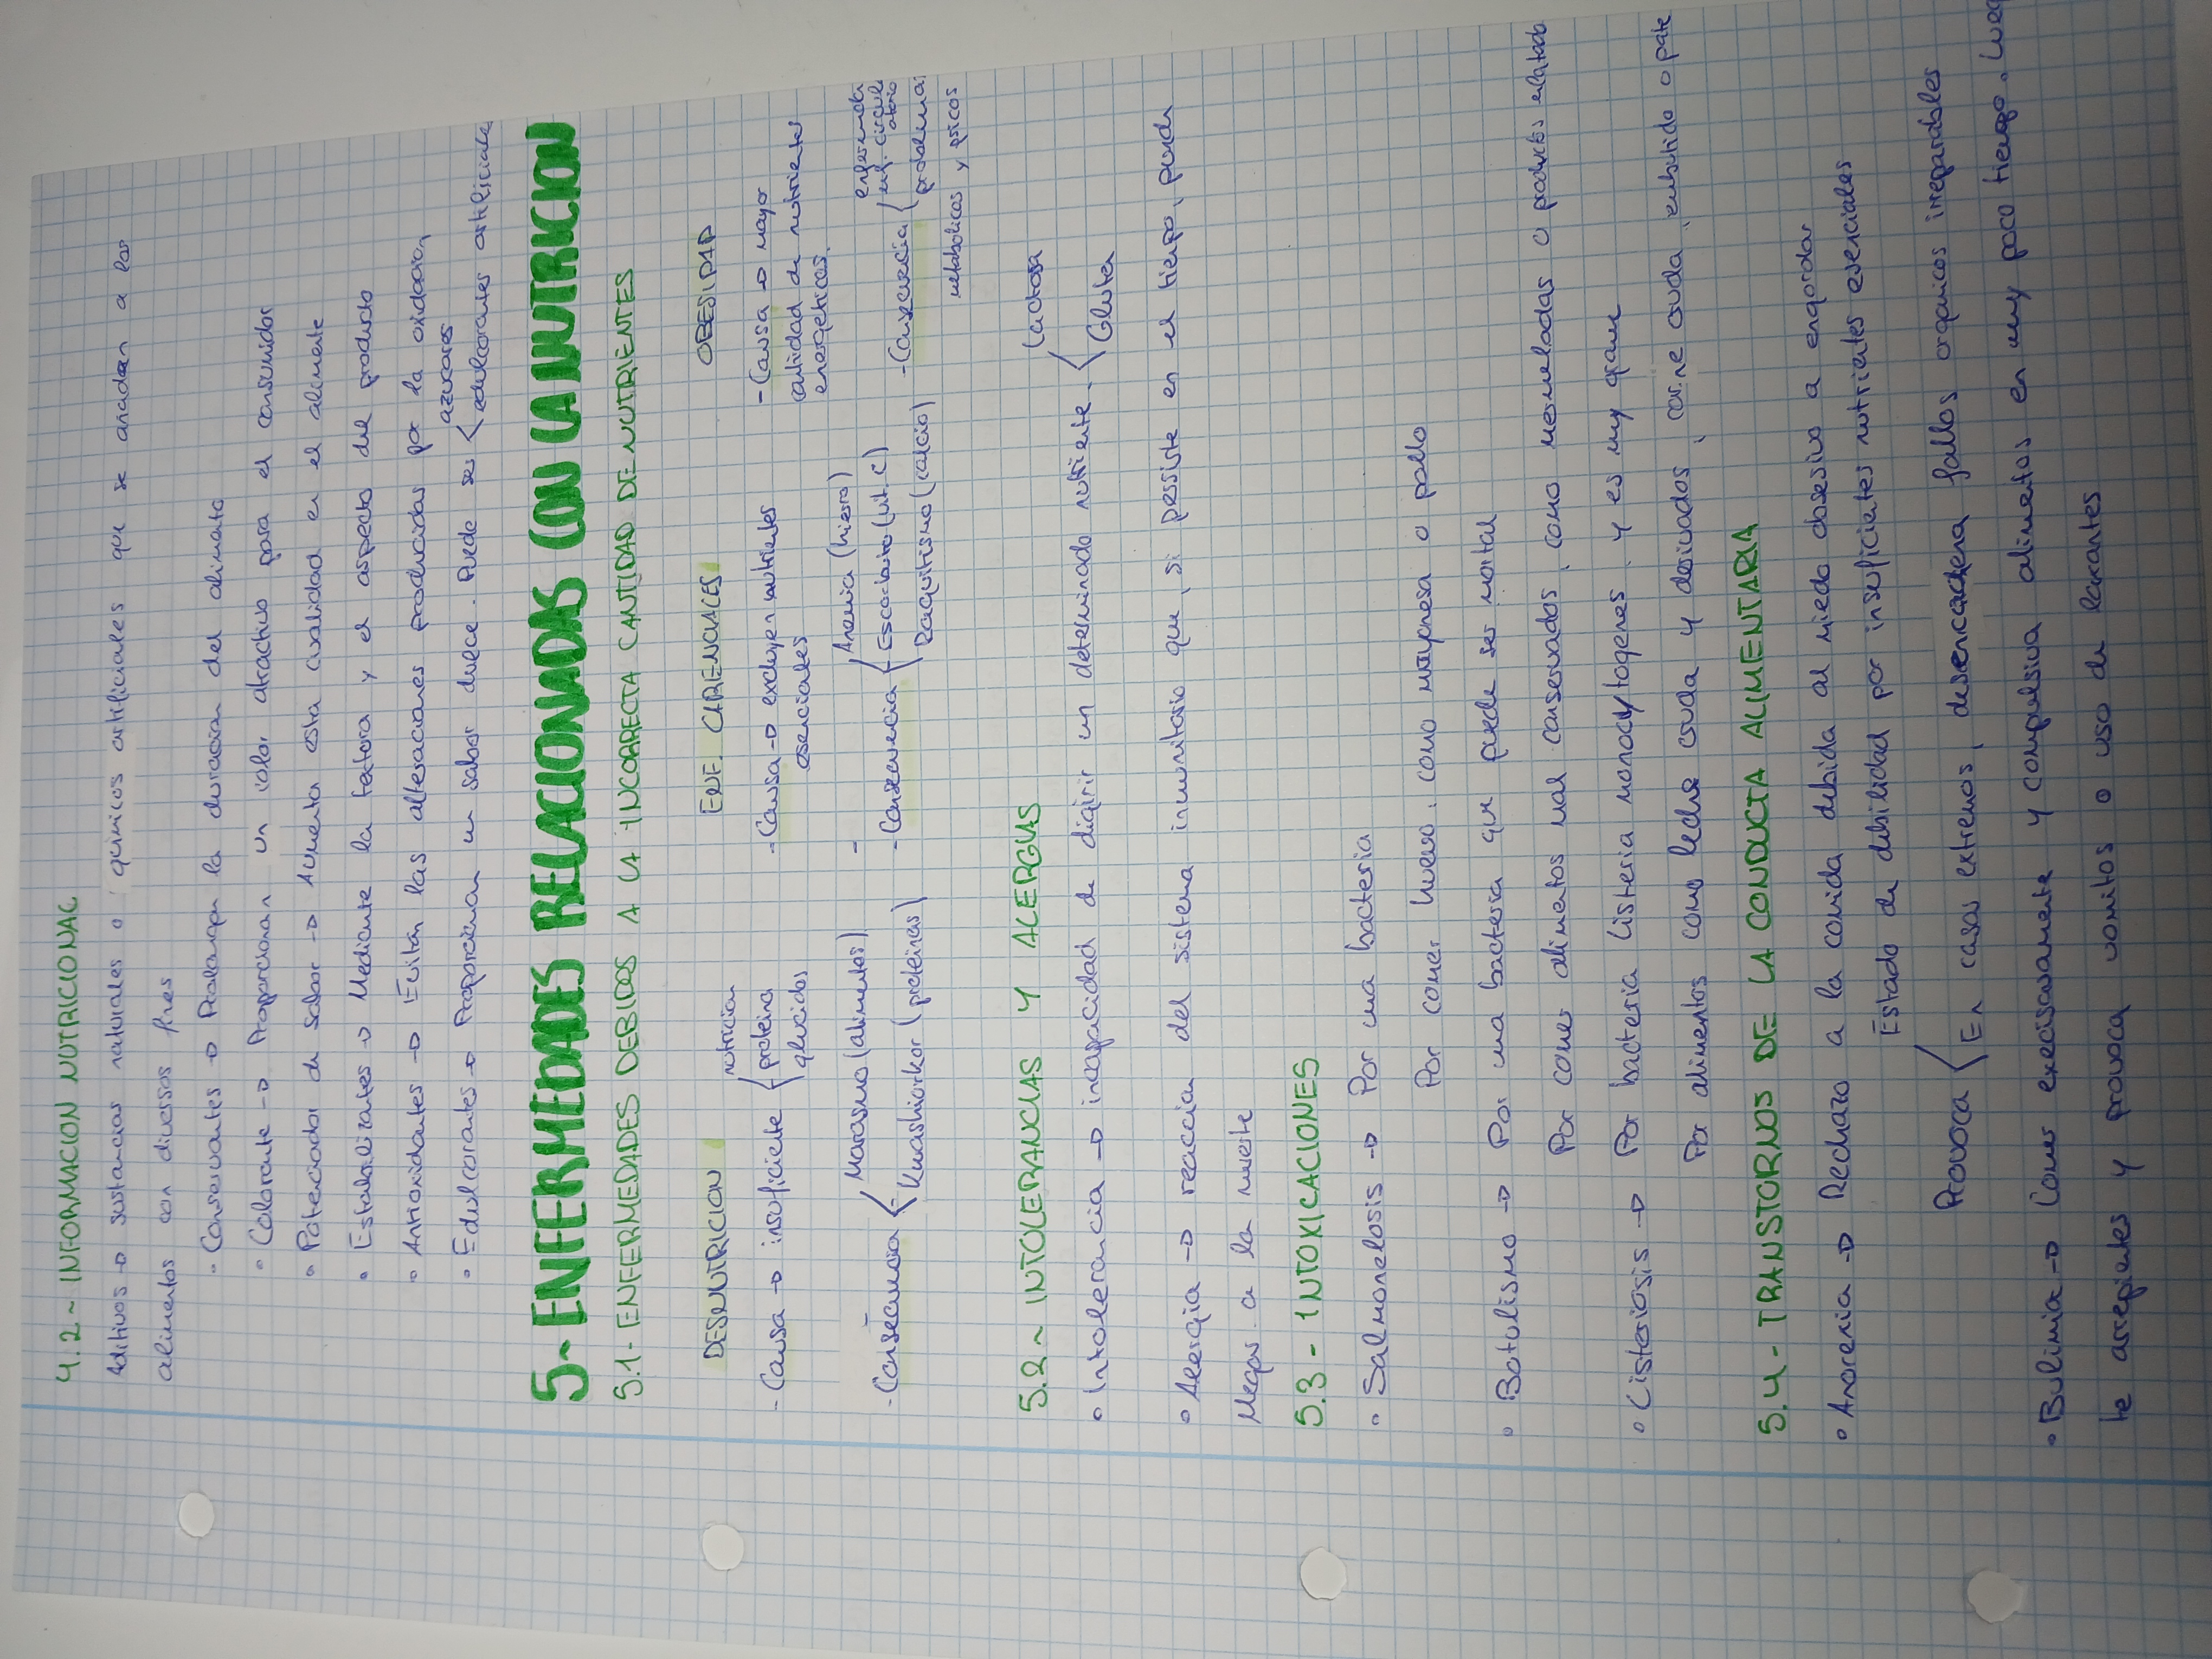 4.2~ INFORMACION NUTRICIONAL
Aditivos → sustancias naturales o quimicos artificiales que se añaden a los
alimentos con diversos fines
• Conservantes → Prolongan la duracion del alimento
• Colorante → Proporcionan un color atractivo para el consumidor
• Potenciador de sabor → Aumenta esta cualidad en el alimente
• Estabilizantes → Mediante la textura y el aspecto del producto
• Antioxidantes → Evitan las alteraciones producidas por la oxidacion
azucares
• Edulcorantes → Proporcionan un sabor dulce. Puede ser < edulcorantes artificiales
5~ ENFERMEDADES RELACIONADAS CON LA NUTRICION
5.1- ENFERMEDADES DEBIDOS A LA INCORRECTA CANTIDAD DE NUTRIENTES
DESNUTRICION ENF. CARENCIALES OBESIDAD
nutricion
- Causa → insuficiente { proteina - Causa → excluyen nutrientes - Causa → mayor
glucidos esenciales cantidad de nutrientes
energeticos.
Marasmo (alimentos) - Anemia (hierro)
- Consecuencia < Kwashiorkor (proteinas) - Consecuencia { Escorbuto (vit. C) - Consecuencia { enf. circul
Raquitismo (calcio) problemas
metabolicos y psicos
5.2~ INTOLERANCIAS Y ALERGIAS
Lactosa
• Intolerancia → incapacidad de digirir un determinado nutriente < Gluten
• Alergia → reaccion del sistema inmunitario que, si persiste en el tiempo, puede
llegar a la muerte
5.3- INTOXICACIONES
• Salmonelosis → Por una bacteria
Por comer huevo, como mayonesa o pollo
• Botulismo → Por una bacteria que puede ser mortal
Por comer alimentos mal conservados, como mermeladas o productos enlatado
• Listeriosis → Por bacteria Listeria monocytogenes, y es muy grave
Por alimentos como leche cruda y derivados, carne cruda, embutido o pate
5.4- TRANSTORNOS DE LA CONDUCTA ALIMENTARIA
• Anorexia → Rechazo a la comida debida al miedo obsesivo a engordar
Estado de debilidad por insuficientes nutrientes esenciales
Provoca < En casos extremos, desencadena fallos organicos irreparables
• Bulimia → Comer execisvamente y compulsiva alimentos en muy poco tiempo. Lueg
te arrepientes y provoca vomitos o uso de laxantes